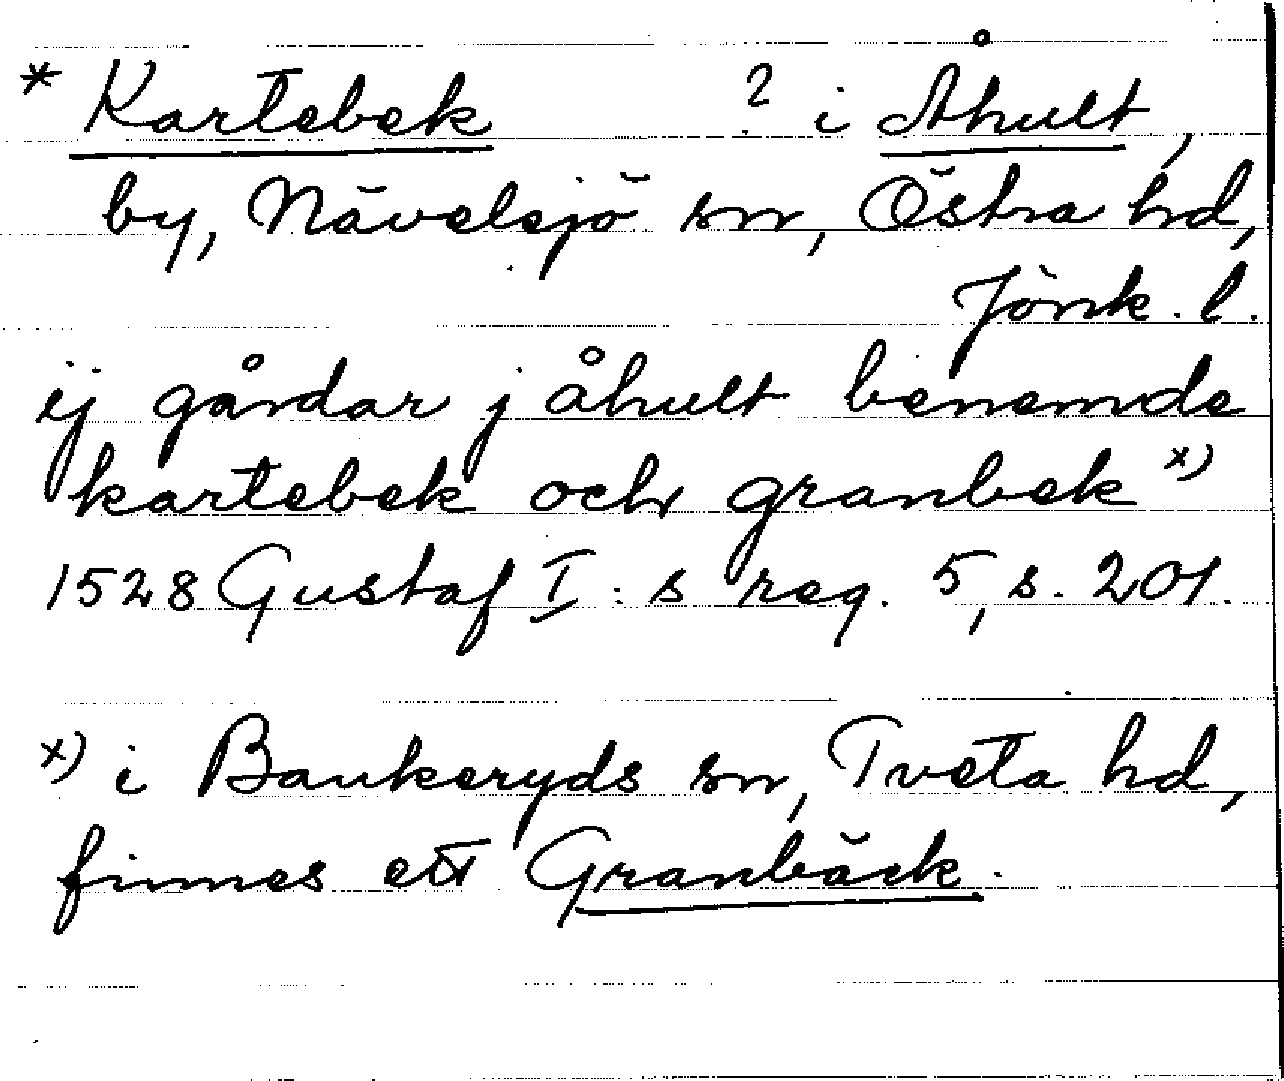 * Kartebek ? i Åhult,
by, Nävelsjö sn, Östra hd,
Jönk. l.
ij gårdar j åhult benemde
kartebek och granbek x)
1528 Gustaf I:s reg. 5, s. 201.
x) i Bankeryds sn, Tveta hd,
finnes ett Granbäck.